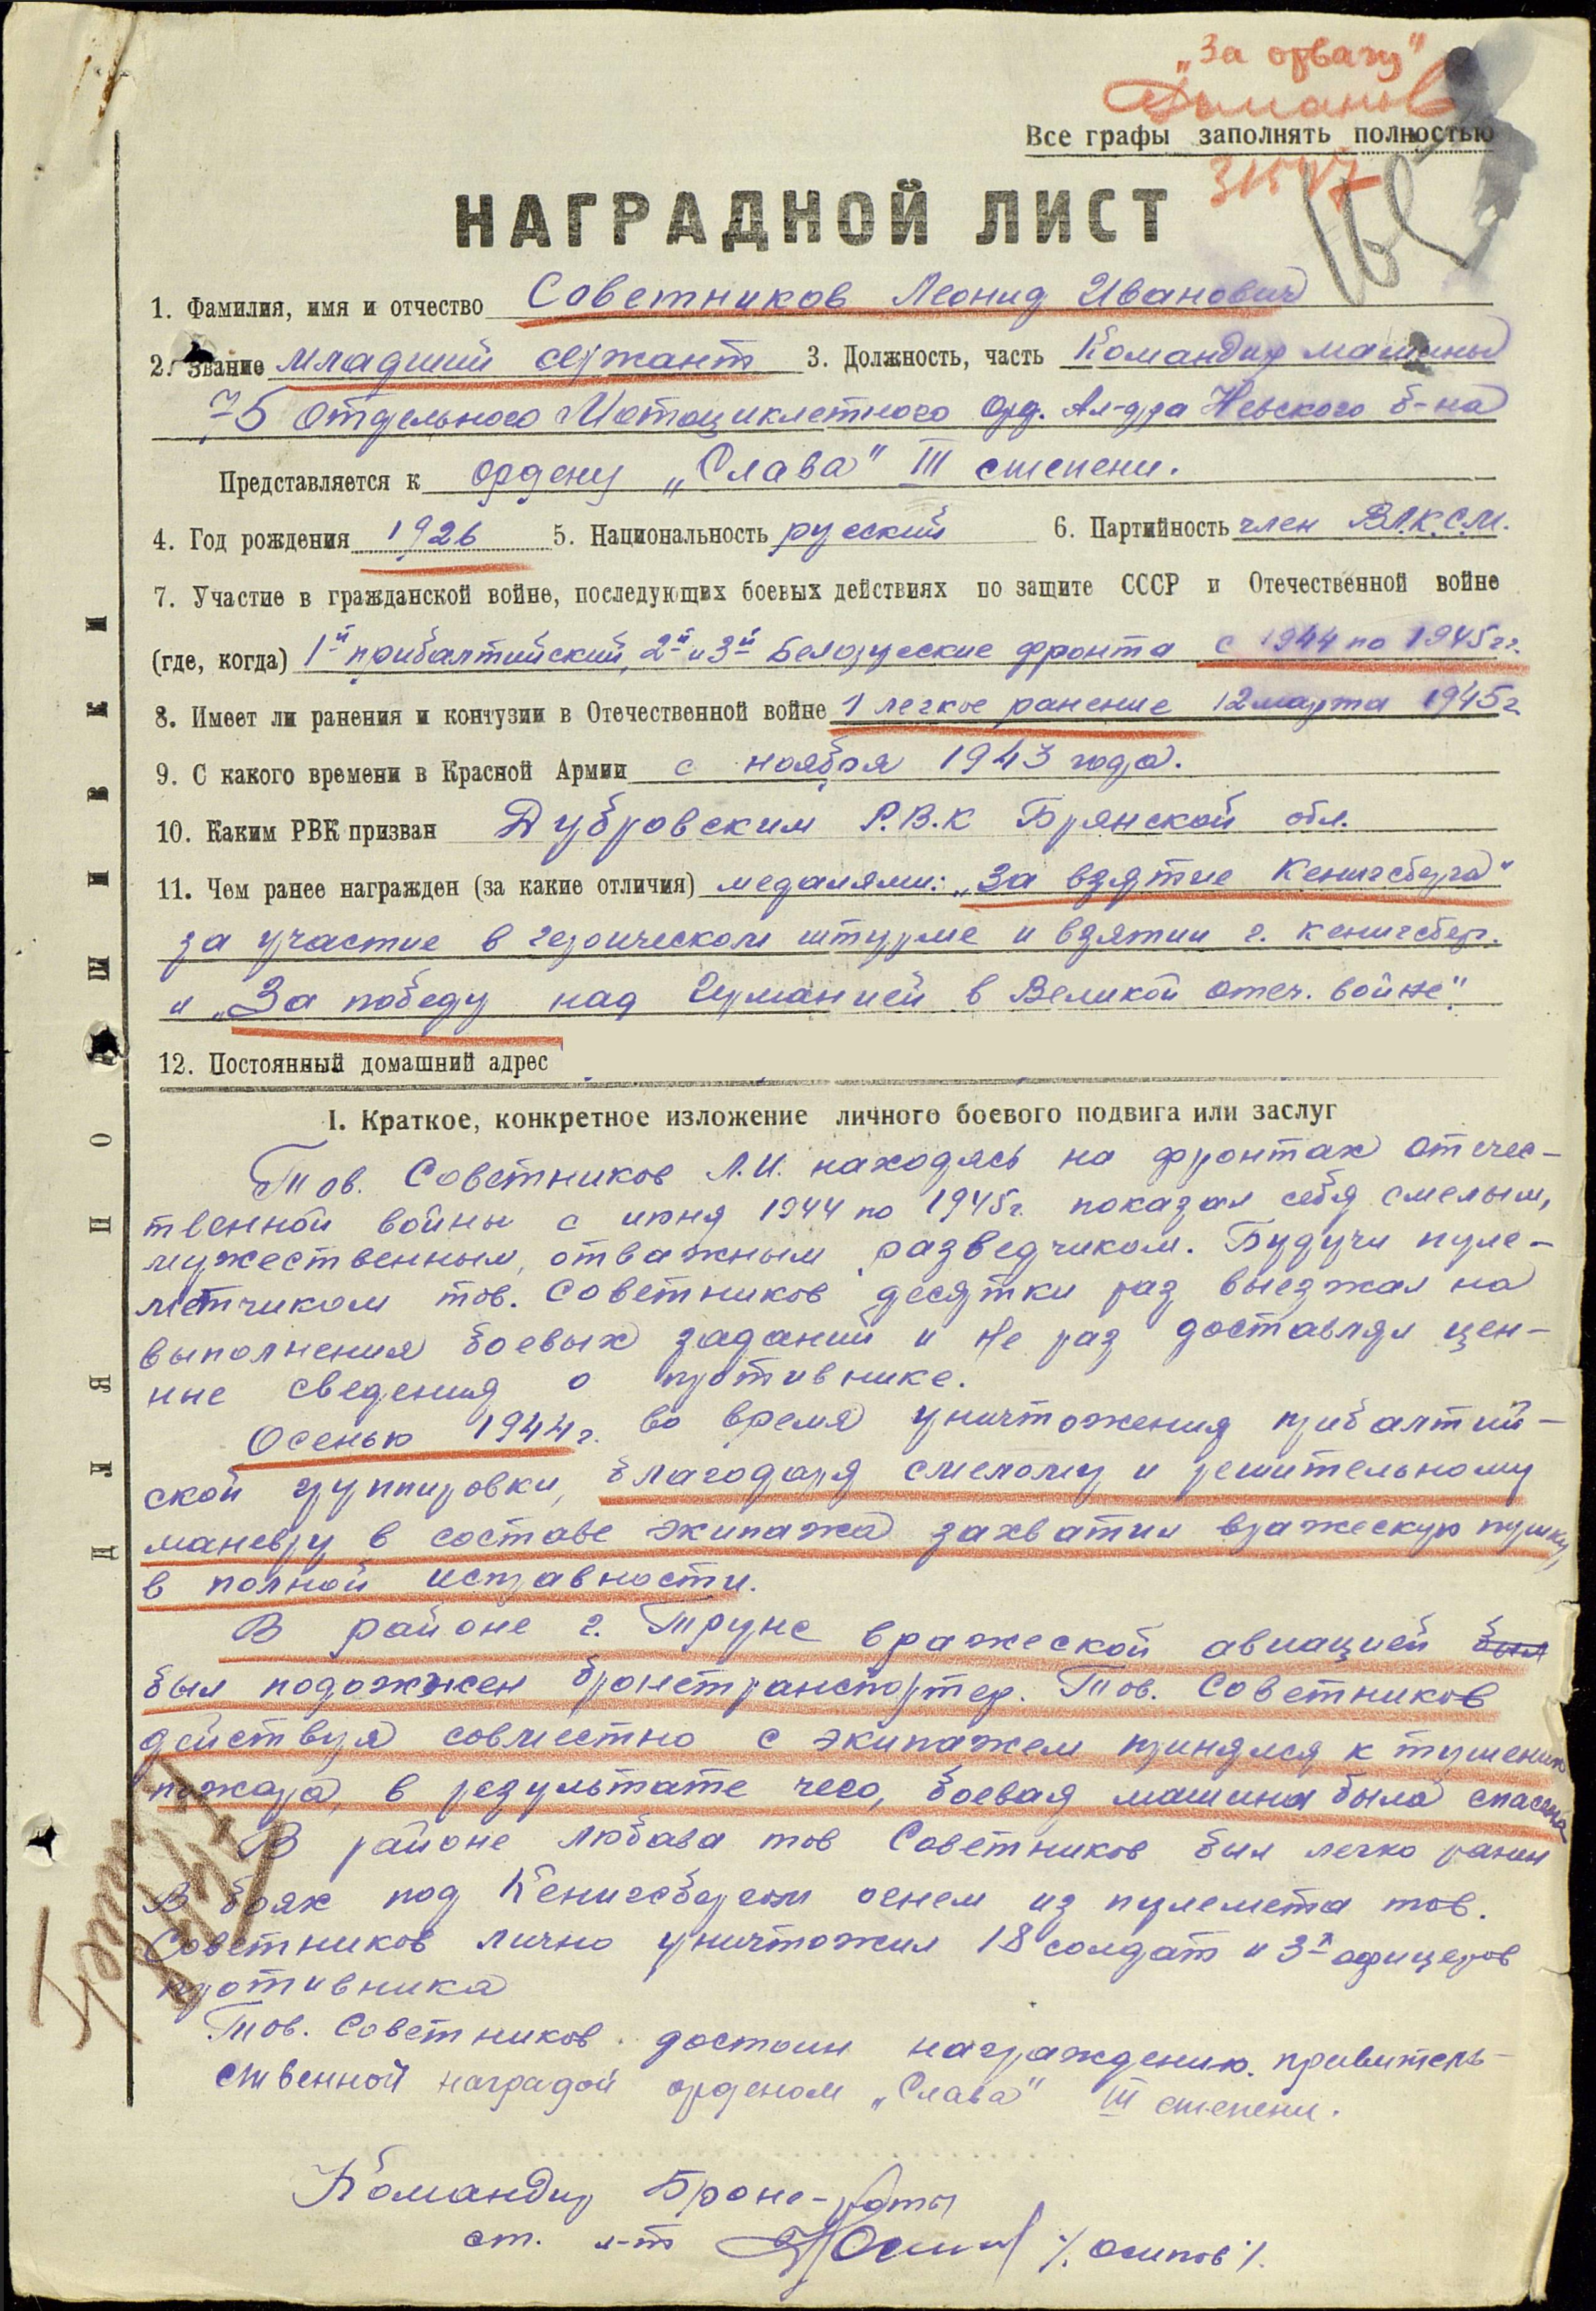 „За отвагу"
Все графы заполнять полностью
НАГРАДНОЙ ЛИСТ
1. Фамилия, имя и отчество Советников Леонид Иванович
2. Звание младший сержант 3. Должность, часть Командир машины
75 Отдельного Мотоциклетного Орд. Ал-дра Невского б-на
Представляется к ордену „Слава" III степени.
4. Год рождения 1926 5. Национальность русский 6. Партийность член ВЛКСМ.
7. Участие в гражданской войне, последующих боевых действиях по защите СССР и Отечественной войне
(где, когда) 1й прибалтийский, 2й и 3й Белорусские фронта с 1944 по 1945 гг.
8. Имеет ли ранения и контузии в Отечественной войне 1 легкое ранение 12 марта 1945г
9. С какого времени в Красной Армии с ноября 1943 года.
10. Каким РВК призван Дубровским Р.В.К Брянской обл.
11. Чем ранее награжден (за какие отличия) медалями: „За взятие Кенигсберга"
за участие в героическом штурме и взятии г. кенигсбер.
и „За победу над Германией в Великой отеч. войне".
12. Постоянный домашний адрес
I. Краткое, конкретное изложение личного боевого подвига или заслуг
Тов. Советников Л.И. находясь на фронтах отечес-
твенной войны с июня 1944 по 1945г. показал себя смелым,
мужественным, отважным разведчиком. Будучи пуле-
метчиком тов. Советников десятки раз выезжал на
выполнения боевых заданий и не раз доставлял цен-
ные сведения о противнике.
Осенью 1944г. во время уничтожения прибалтий-
ской группировки, благодаря смелому и решительному
маневру в составе экипажа захватил вражескую пушку,
в полной исправности.
В районе г. Трунс вражеской авиацией был
был подожжен бронетранспортер. Тов. Советников
действуя совместно с экипажем принялся к тушению
пожара, в результате чего, боевая машина была спасена
В районе любава тов Советников был легко ранен
В боях под Кенигсбергом огнем из пулемета тов.
Советников лично уничтожил 18 солдат и 3х офицеров
противника
Тов. Советников достоин награждению правитель-
ственной наградой орденом „Слава" III степени.
Командир Броне-роты
ст. л-т /. Осипов /.
ДЛЯ ПОДШИВКИ